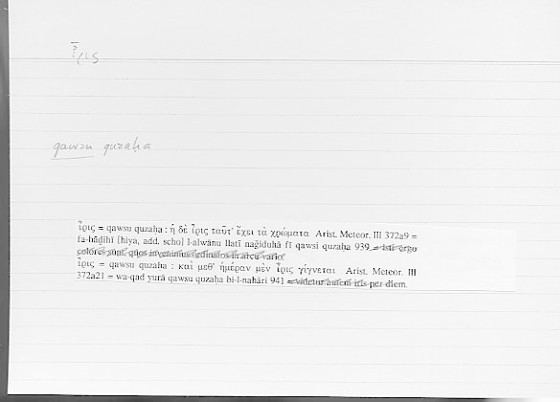 ἶρις
qawsu quzaḥa
ἶρις = qawsu quzaḥa : ἡ δὲ ἶρις ταῦτ' ἔχει τὰ χρώματα Arist. Meteor. III 372a9 =
fa-hāḏihī [hiya, add. scho] l-alwānu llatī naǧiduhā fī qawsi quzaḥa 939 = isti ergo
colores sunt, quos invenimus ordinatos in arcu vario
ἶρις = qawsu quzaḥa : καὶ μεθ' ἡμέραν μὲν ἶρις γίγνεται Arist. Meteor. III
372a21 = wa-qad yurā qawsu quzaḥa bi-l-nahāri 941 = videtur autem iris per diem.